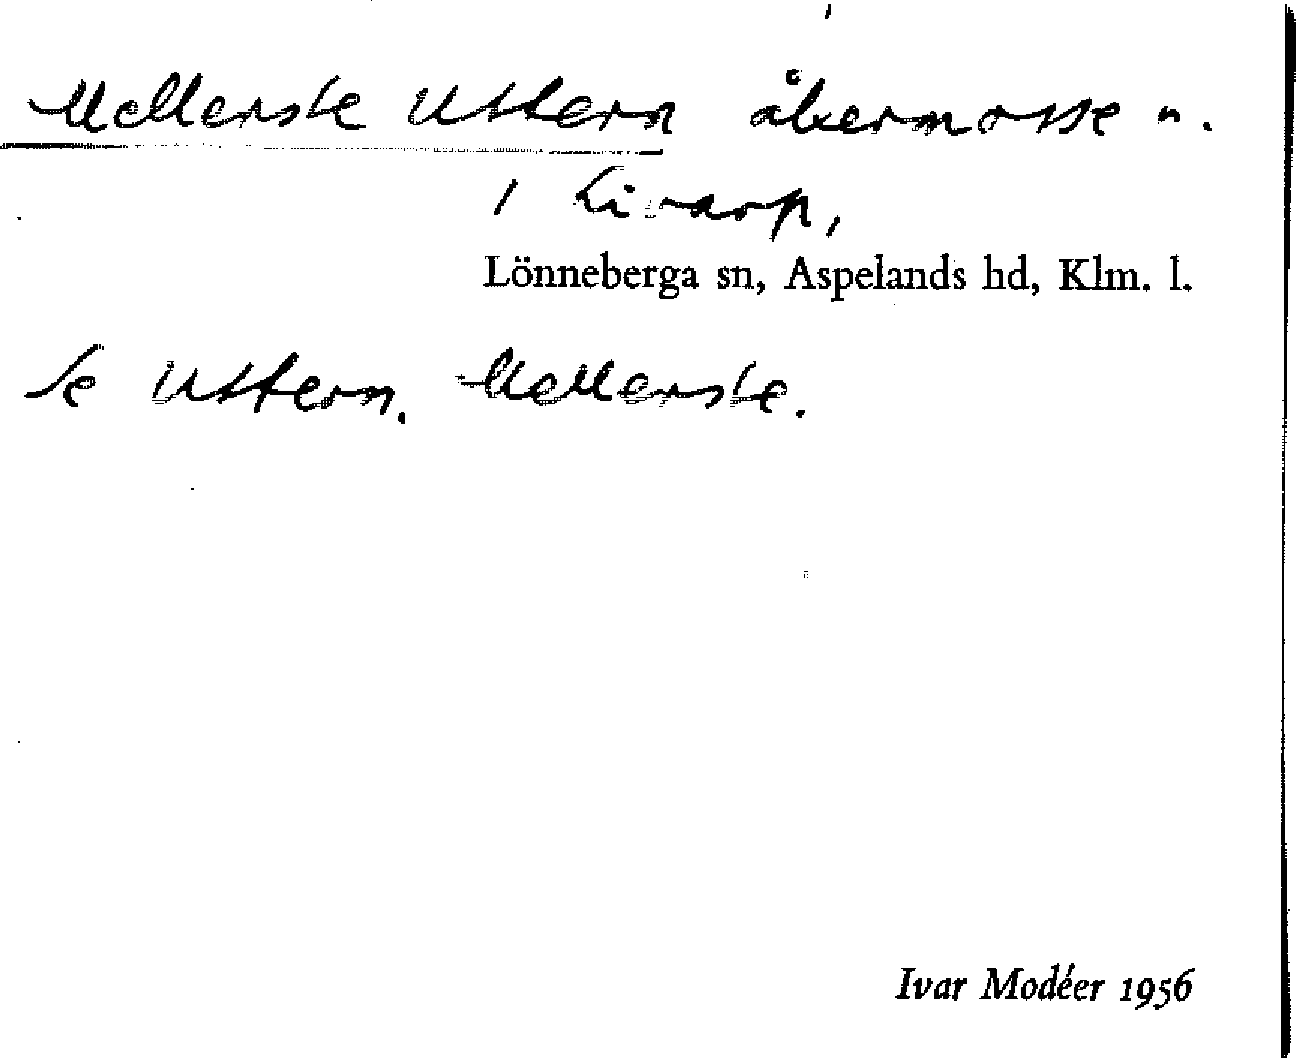 Mellerste Uttern åkermosse n.
i Livarp,
Lönneberga sn, Aspelands hd, Klm. l.
Se Uttern. Mellerste.
Ivar Modéer 1956